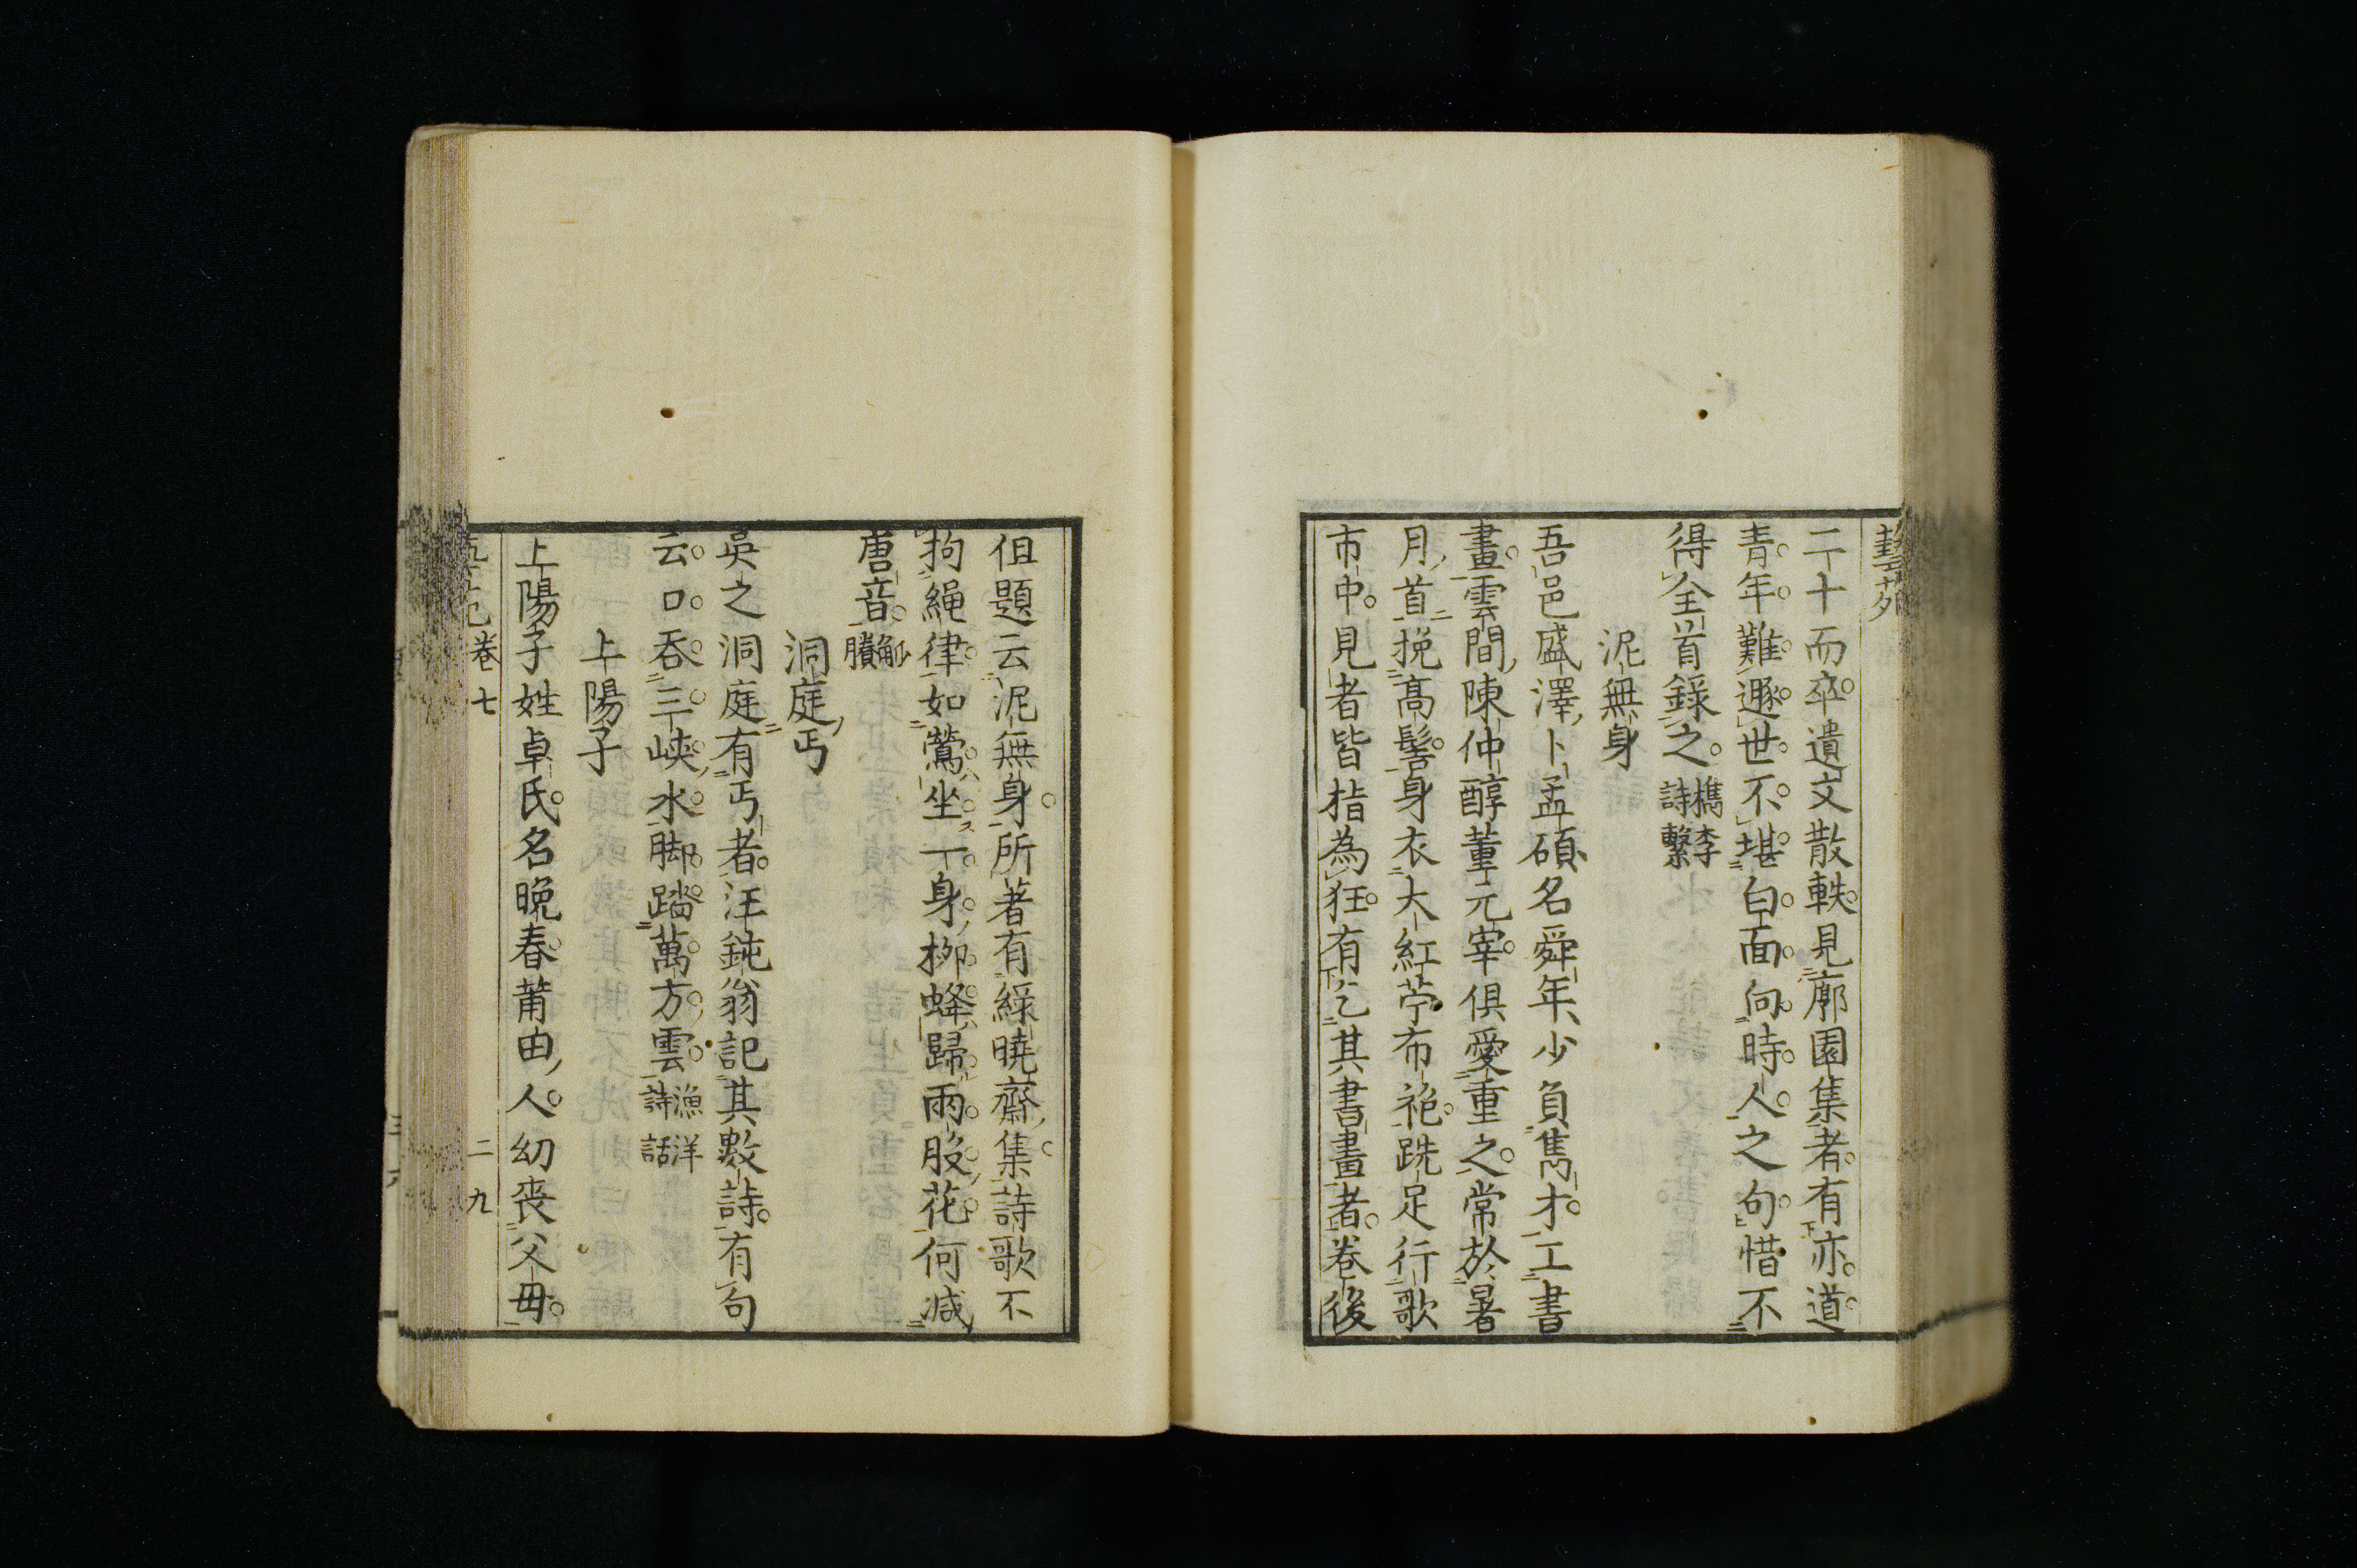 藝苑
二十而卒遺文散軼見廓園集者有亦道
青年難遯世不堪白面向時人之句惜不
得全首錄之檇李詩繫
泥無身
吾邑盛澤卜孟碩名舜年少負雋才工書
畫雲間陳仲醇董元宰俱愛重之常於暑
月首挽高髻身衣大紅苧布袍跣足行歌
市中見者皆指為狂有乞其書畫者卷後
但題云泥無身所著有綠曉齋集詩歌不
拘繩律如鶯坐一身柳蜂歸兩股花何減
唐音觚賸
洞庭丐
吳之洞庭有丐者汪鈍翁記其數詩有句
云口吞三峽水脚踏萬方雲漁洋詩話
上陽子
上陽子姓卓氏名晚春莆田人幼喪父母
卷七
二九